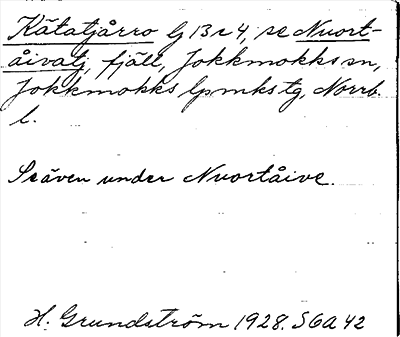 Kätatjårro lj 13 r 4, se Nuort-
åivatj, fjäll, Jokkmokks sn,
Jokkmokks lpmks tg, Norrb.
l.
Se även under Nuortåive.
H. Grundström 1928. S 6a 42